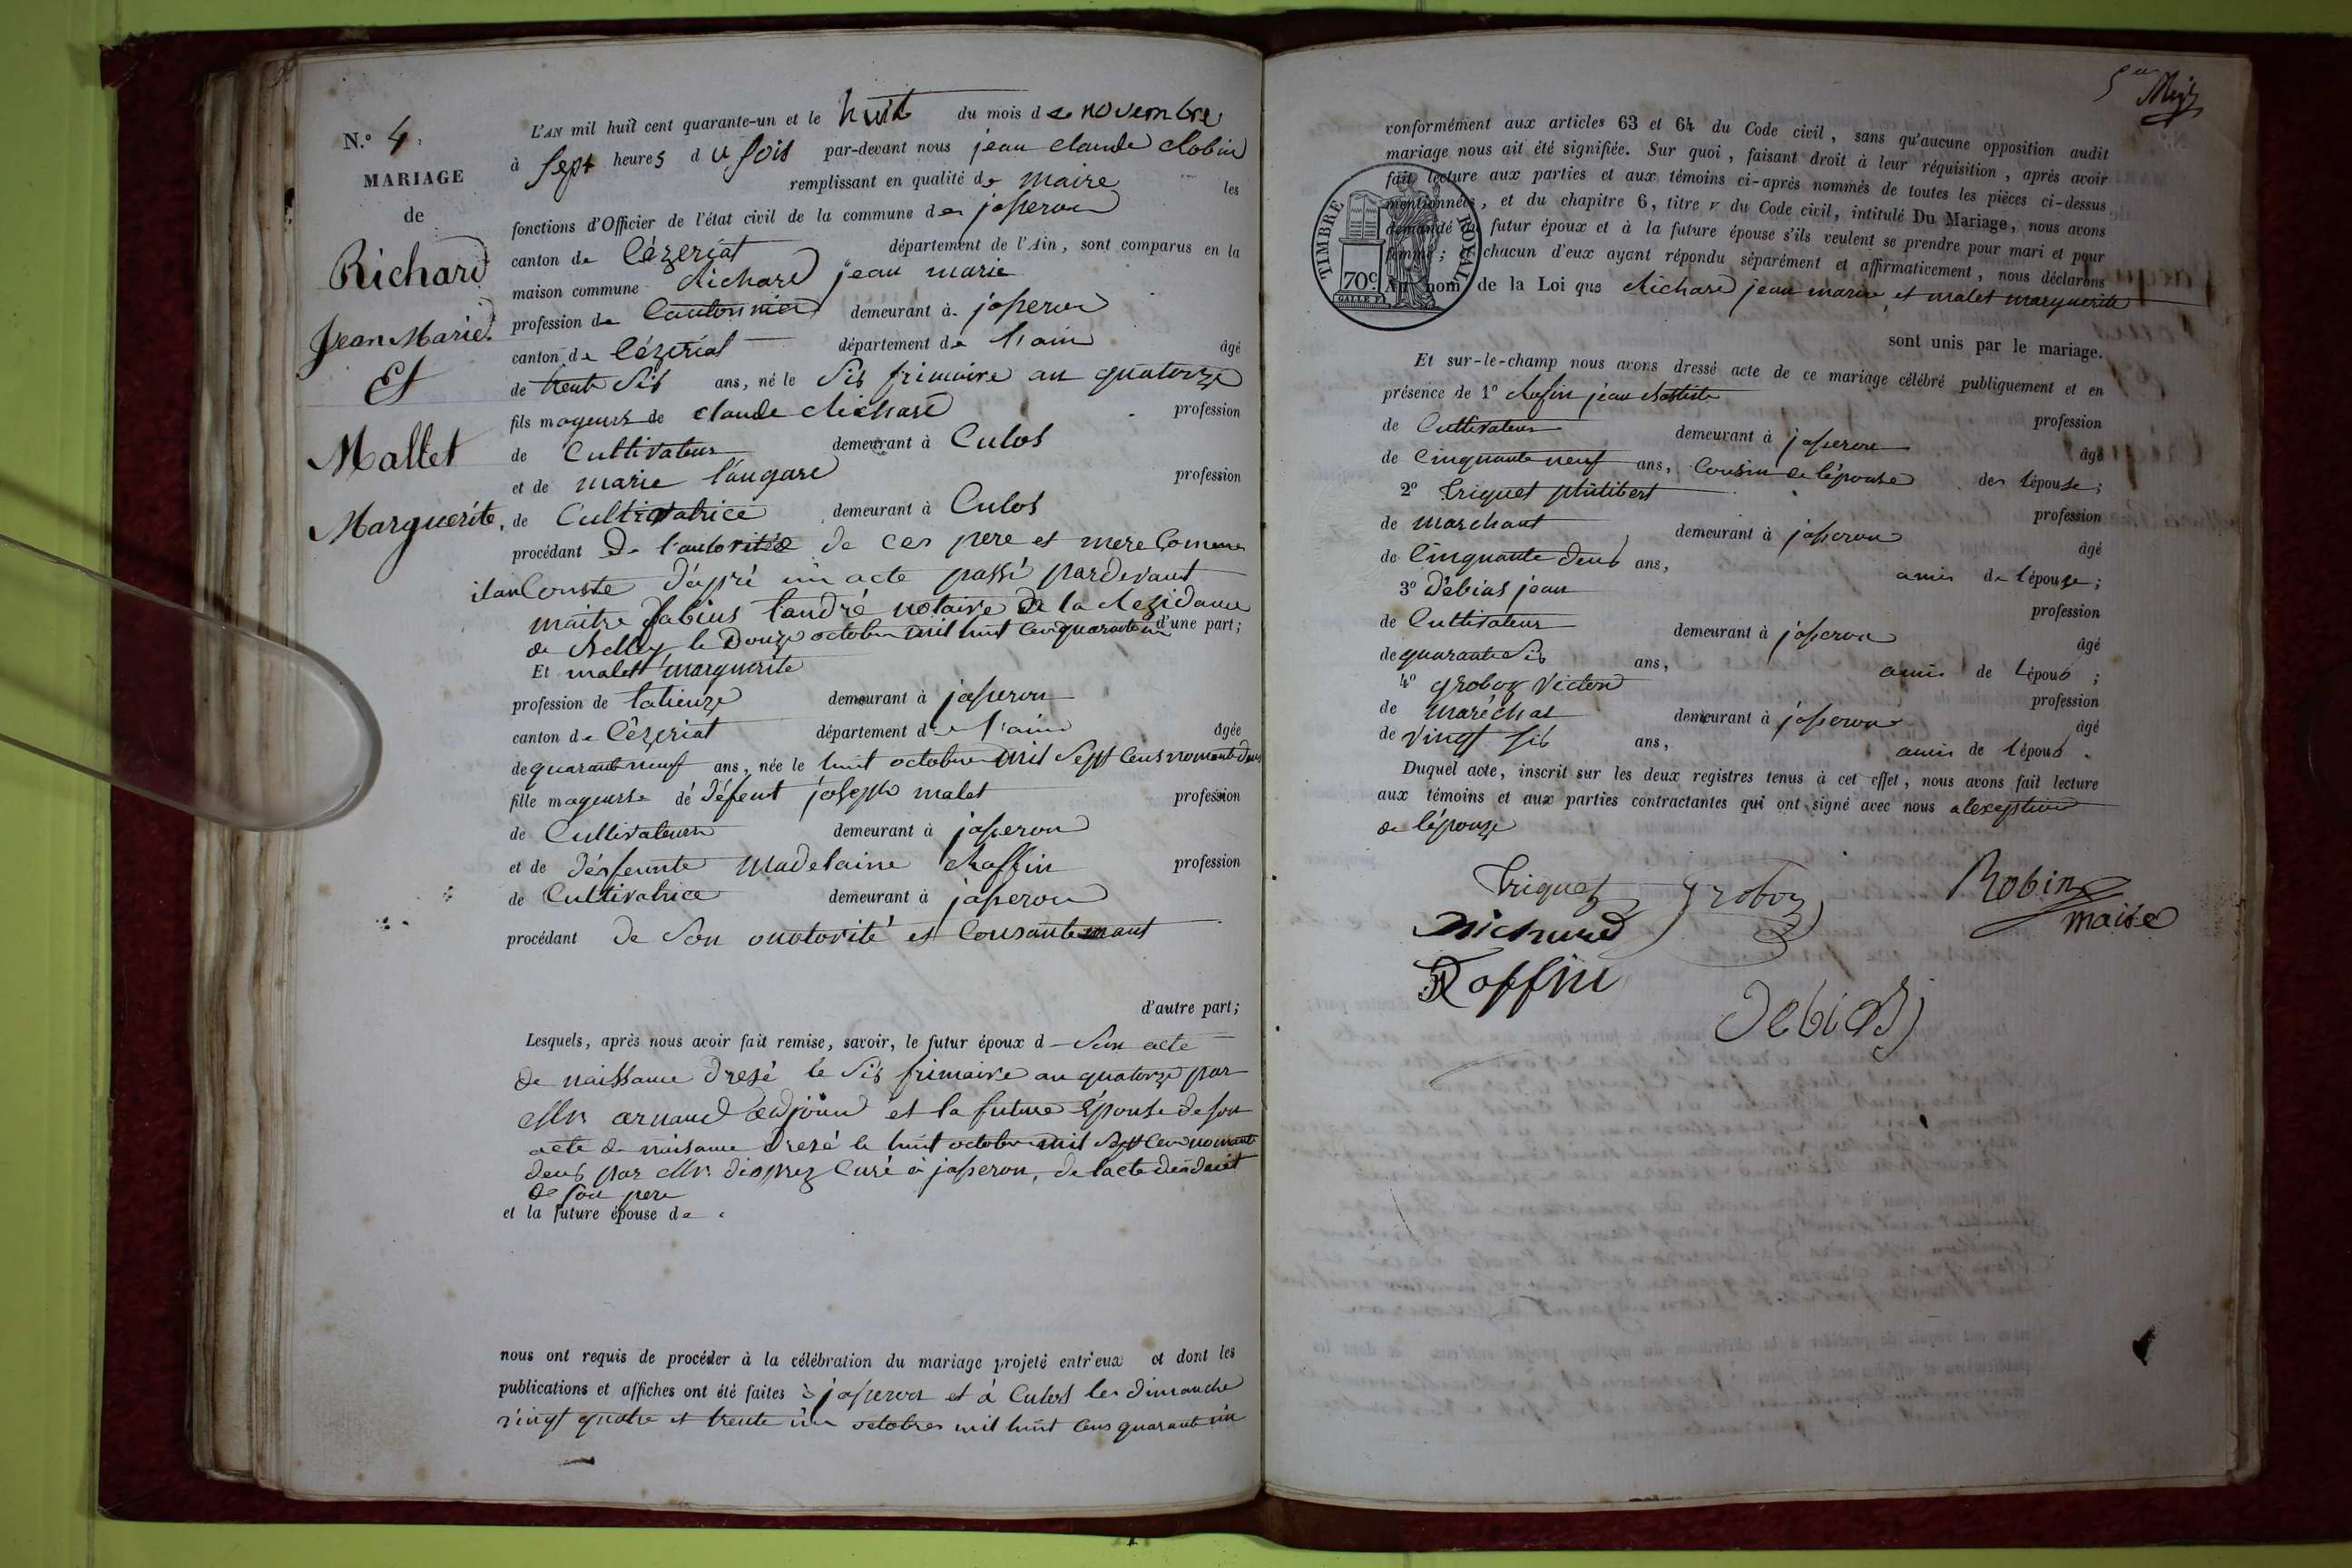 N.o 4.
MARIAGE
de
Richard
Jean Marie.
Et
Mallet
Marguerite,
L'AN mil huit cent quarante-un et le huit du mois de novembre
à sept heures du soir par-devant nous jean claude Robin
remplissant en qualité de maire les
fonctions d'Officier de l'état civil de la commune de jasseron
canton de Cézeriat département de l'Ain, sont comparus en la
maison commune Richard jean marie
profession de Cantonnier demeurant à jasseron
canton de Cézeriat département de l'ain âgé
de trente six ans, né le six frimaire an quatorze
fils mageurs de claude Richard profession
de Cultivateur demeurant à Culos
et de marie profession
de Cultivatrice demeurant à Culos
procédant de l'autoritée de ces pere et mere Comme
ilan Conste d'apré un acte passé pardevant
maitre fabius notaire de la Residance
de Belley le Douze octobre mil huit Cen quarante un d'une part;
Et malet marguerite
profession de demeurant à jasseron
canton de Cézeriat département de l'ain âgée
de quarante neuf ans, née le huit octobre mil Sept Cens nonante deux
fille mageurse de défent joseph malet profession
de Cultivateur demeurant à jasseron
et de désfeunte Madelaine Raffin profession
de Cultivatrice demeurant à jasseron
procédant de Son onotorité et Consantemant
d'autre part;
Lesquels, après nous avoir fait remise, savoir, le futur époux d Son acte
de naissance dresé le six frimaire an quatorze par
Mr. arnaud adjoint et la future Epouse de son
acte de naisance dresé le huit octobre mil Sept Cen nonante
deux par Mr. desprez Curé à jasseron, de lacte
de son pere
et la future épouse de
nous ont requis de procéder à la célébration du mariage projeté entr'eux et dont les
publications et affiches ont été faites à jasseron et à Culos les dimanche
vingt quatre et trente un octobres mil huit Cens quarante un
conformément aux articles 63 et 64 du Code civil, sans qu'aucune opposition audit
mariage nous ait été signifiée. Sur quoi, faisant droit à leur réquisition, après avoir
fait lecture aux parties et aux témoins ci-après nommés de toutes les pièces ci-dessus
mentionnées, et du chapitre 6, titre v du Code civil, intitulé Du Mariage, nous avons
demandé futur époux et à la future épouse s'ils veulent se prendre pour mari et pour
femme; chacun d'eux ayant répondu séparément et affirmativement, nous déclarons
Au nom de la Loi que Richard jean marie et malet marguerite
sont unis par le mariage.
TIMBRE ROYAL
70c.
Et sur-le-champ nous avons dressé acte de ce mariage célébré publiquement et en
présence de 1o Rafin jean Batiste profession
de Cultivateur demeurant à jasseron âgé
de Cinquante neuf ans, Cousin de lépouse de lépouse;
2o Triquet philibert profession
de marchant demeurant à jasseron âgé
de Cinquante deux ans, amis de lépouse;
3o Débias jean profession
de Cultivateur demeurant à jasseron âgé
de quarante six ans, amis de lépoux;
4o groboz Victor profession
de maréchal demeurant à jasseron âgé
de vingt six ans, amis de lépoux.
Duquel acte, inscrit sur les deux registres tenus à cet effet, nous avons fait lecture
aux témoins et aux parties contractantes qui ont signé avec nous a lexception
de lépouze
Triquet groboz Robin
maire
Richard
Raffin
Debias